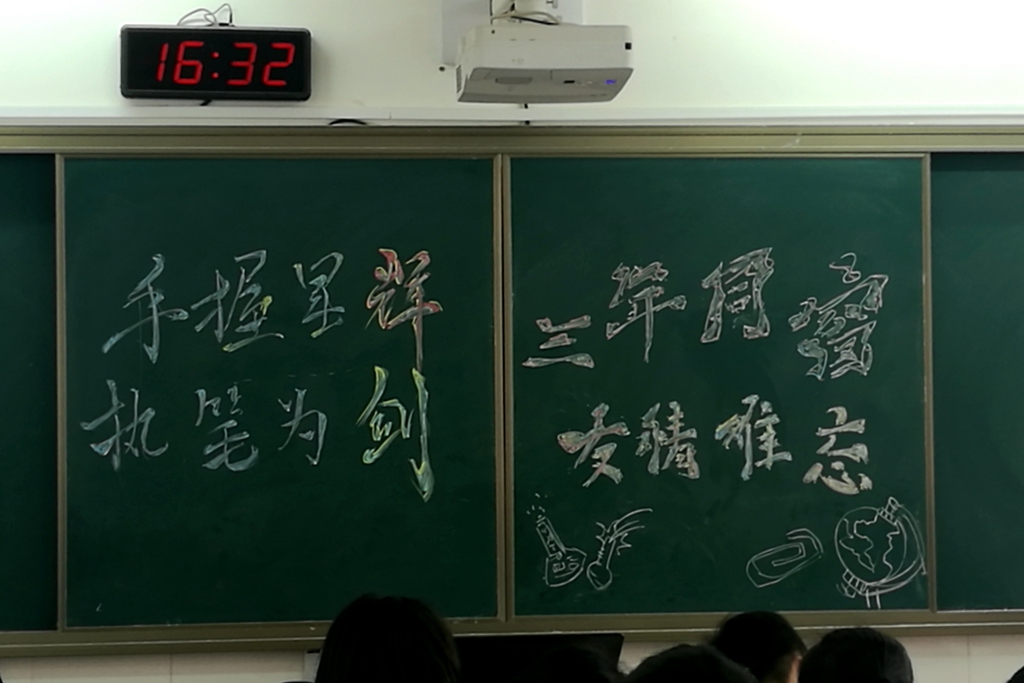 16:32
手握星辉
执笔为剑
三年同窗
友情难忘